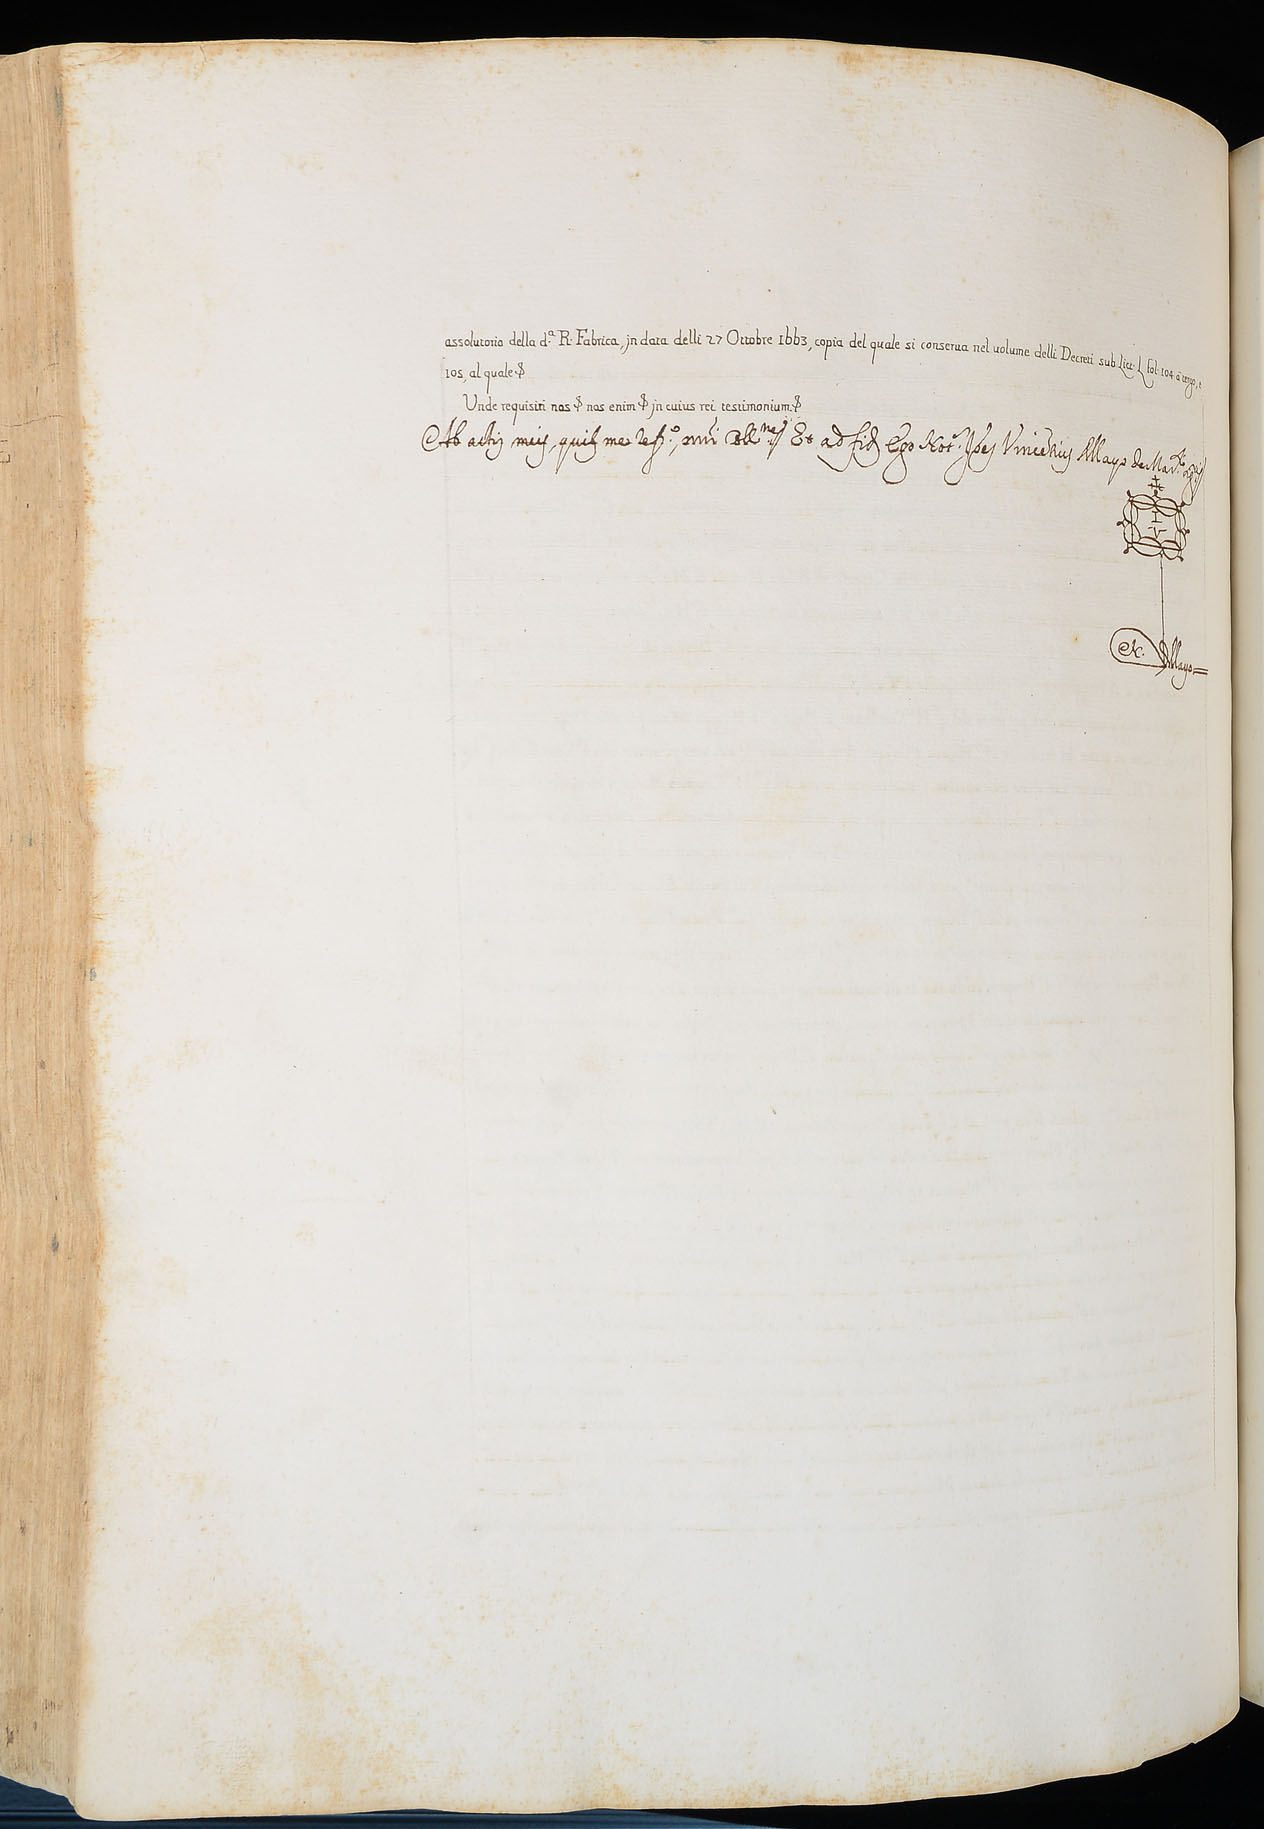 assolutorio della d.ª R. Fabrica, jn data delli 27 Ottobre 1663, copia del quale si conserua nel uolume delli Decreti sub Litt. L fol. 104. à tergo, e
105, al quale
Unde requisiti nos nos enim jn cuius rei testimonium
Ab actis meis, Et ad fid Ego Not.r Vincentius Mayo de
I
V
N. Mayo